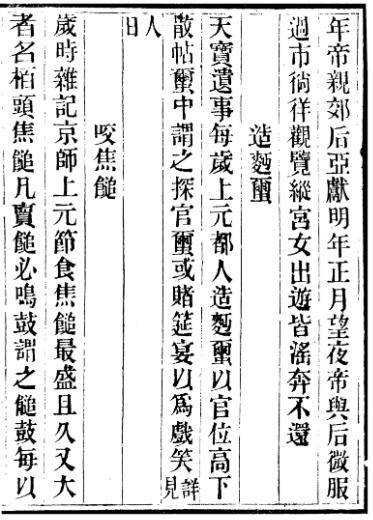 年帝親郊后亞獻明年正月望夜帝與后微服
過市徜徉觀覽縱宮女出遊皆淫奔不還
造麪䘉
天寶遺事每歲上元都人造麪䘉以官位高下
散帖䘉中謂之探官䘉或賭筵宴以爲戲笑詳見
人日
咬焦䭔
歲時雜記京師上元節食焦䭔最盛且久又大
者名栢頭焦䭔凡賣䭔必鳴鼓謂之䭔鼓每以